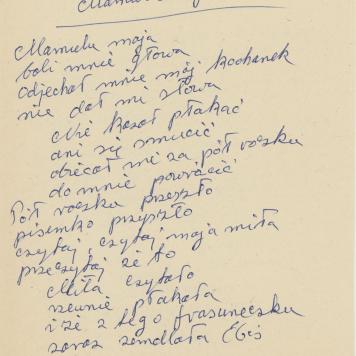 Mamulu moja
boli mnie głowa
odjechał mnie mój kochanek
nie dał mi słowa
Nie kazał płakać
ani się smucić
obiecał mi za pół roczku
do mnie powrócić
Pół roczku przeszło
pisemko przyszło
czytaj, czytaj, moja miła
przeczytaj że to
Miła czytało
rzewnie płakała
i że z tego frasuneczku
zaraz zemdlała